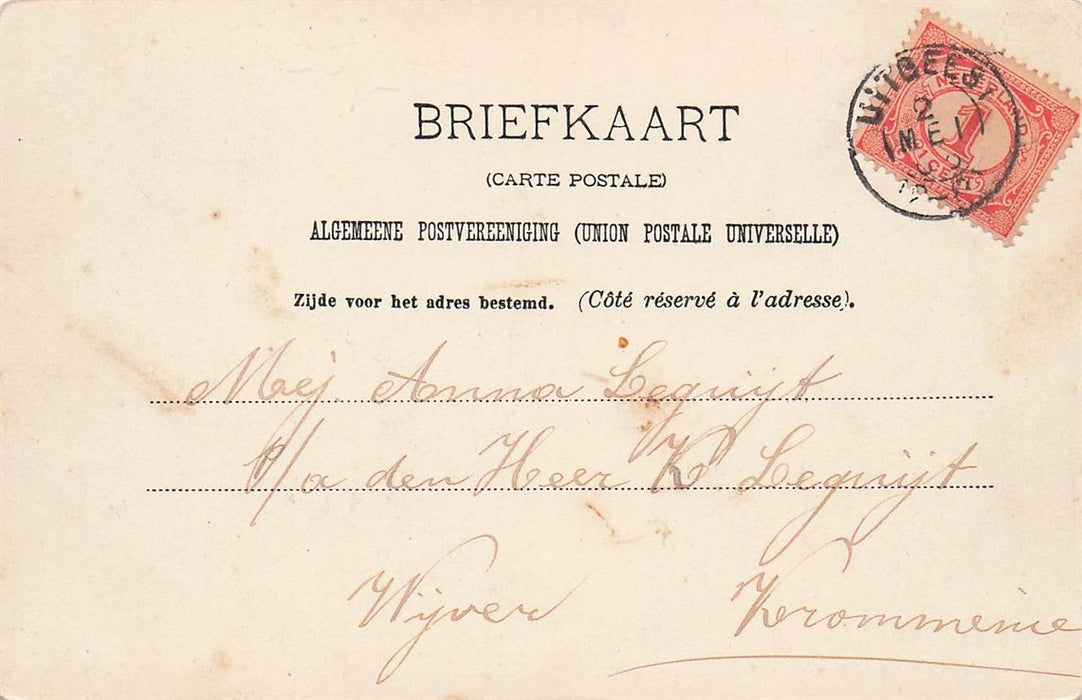 BRIEFKAART
(CARTE POSTALE)
ALGEMEENE POSTVEREENIGING (UNION POSTALE UNIVERSELLE)
Zijde voor het adres bestemd. (Côté réservé à l'adresse).
UITGEEST
2
MEI
NEDERLAND
1
CENT
Mej. Anna Leguijt
p/a den Heer K Leguijt
Wijver Krommenie